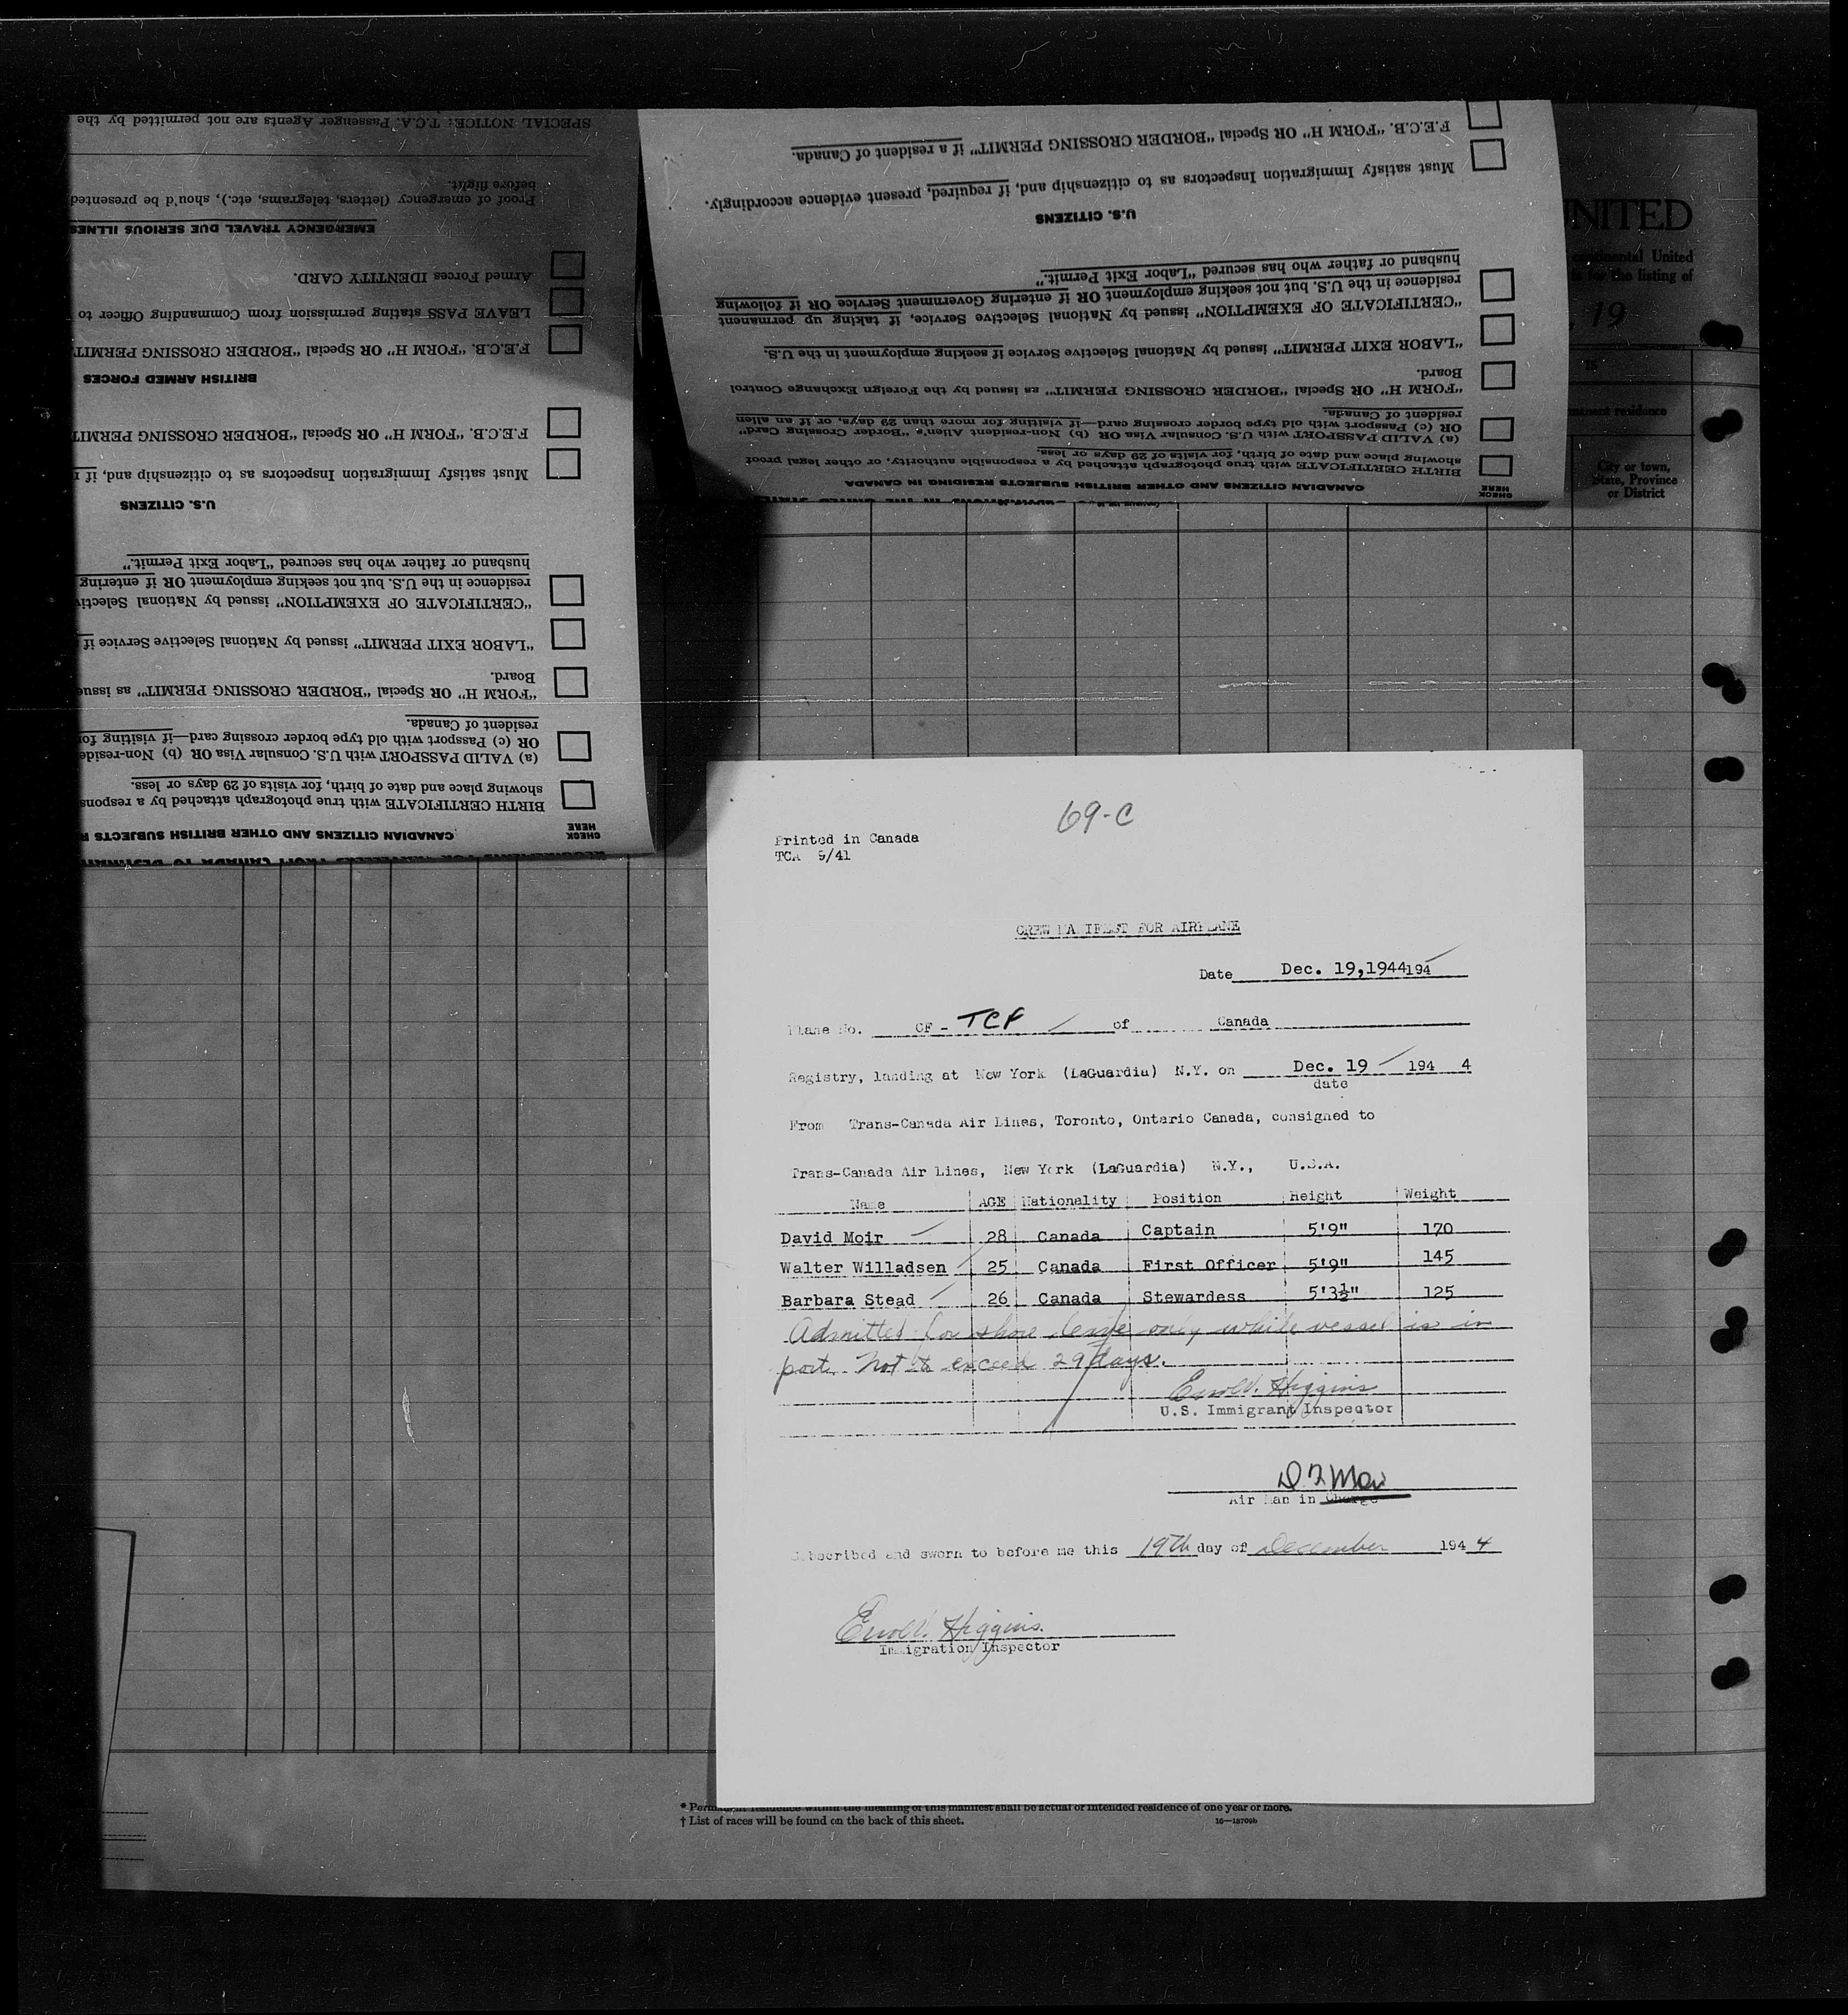 SPECIAL NOTICE: T.C.A. Passenger Agents are not permitted by the
before flight.
Proof of emergency (letters, telegrams, etc.), should be presented
EMERGENCY TRAVEL DUE SERIOUS ILLNES
Armed Forces IDENTITY CARD.
LEAVE PASS stating permission from Commanding Officer to
F.E.C.B. "FORM H" OR Special "BORDER CROSSING PERMIT
BRITISH ARMED FORCES
F.E.C.B. "FORM H" OR Special "BORDER CROSSING PERMIT
Must satisfy Immigration Inspectors as to citizenship and, if r
U.S. CITIZENS
husband or father who has secured "Labor Exit Permit."
residence in the U.S. but not seeking employment OR if entering
"CERTIFICATE OF EXEMPTION" issued by National Selectiv
"LABOR EXIT PERMIT" issued by National Selective Service if
Board.
"FORM H" OR Special "BORDER CROSSING PERMIT" as issue
resident of Canada.
OR (c) Passport with old type border crossing card—if visiting for
(a) VALID PASSPORT with U.S. Consular Visa OR (b) Non-reside
showing place and date of birth, for visits of 29 days or less.
BIRTH CERTIFICATE with true photograph attached by a respons
CANADIAN CITIZENS AND OTHER BRITISH SUBJECTS R
CHECK
HERE
F.E.C.B. "FORM H" OR Special "BORDER CROSSING PERMIT" if a resident of Canada.
Must satisfy Immigration Inspectors as to citizenship and, if required, present evidence accordingly.
U.S. CITIZENS
husband or father who has secured "Labor Exit Permit."
residence in the U.S. but not seeking employment OR if entering Government Service OR if following
"CERTIFICATE OF EXEMPTION" issued by National Selective Service, if taking up permanent
"LABOR EXIT PERMIT" issued by National Selective Service if seeking employment in the U.S.
Board.
"FORM H" OR Special "BORDER CROSSING PERMIT" as issued by the Foreign Exchange Control
resident of Canada.
OR (c) Passport with old type border crossing card—if visiting for more than 29 days, or if an alien
(a) VALID PASSPORT with U.S. Consular Visa OR (b) Non-resident Alien's "Border Crossing Card"
showing place and date of birth, for visits of 29 days or less.
BIRTH CERTIFICATE with true photograph attached by a responsible authority, or other legal proof
CANADIAN CITIZENS AND OTHER BRITISH SUBJECTS RESIDING IN CANADA
CHECK
HERE
UNITED
continental United
is for the listing of
, 19
15
manent residence
City or town,
State, Province
or District
69-C
Printed in Canada
TCA 9/41
CREW MANIFEST FOR AIRPLANE
Date Dec. 19,1944194
Plane No. CF - TCF of Canada
Registry, landing at New York (LaGuardia) N.Y. on Dec. 19 194 4
date
From Trans-Canada Air Lines, Toronto, Ontario Canada, consigned to
Trans-Canada Air Lines, New York (LaGuardia) N.Y., U.S.A.
Name AGE Nationality Position Height Weight
David Moir 28 Canada Captain 5'9" 170
Walter Willadsen 25 Canada First Officer 5'9" 145
Barbara Stead 26 Canada Stewardess 5'3½" 125
Admitted for shore leave only while vessel is in
port. Not to exceed 29 days.
Errol V. Higgins
U.S. Immigrant Inspector
D.F. Moir
Air Man in Charge
Subscribed and sworn to before me this 19th day of December 194 4
Errol V. Higgins.
Immigration Inspector
* Permanent residence within the meaning of this manifest shall be actual or intended residence of one year or more.
† List of races will be found on the back of this sheet.
16—18709b